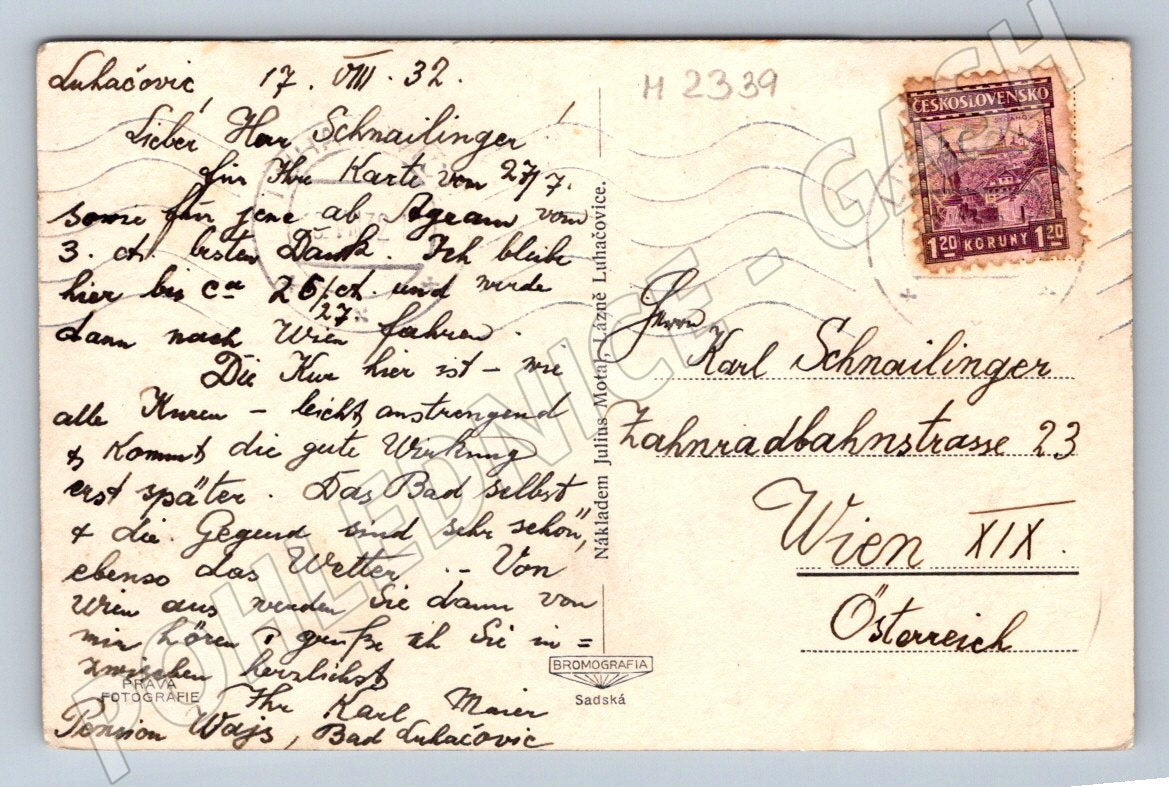 Luhačovic, 17. VIII. 32.
Lieber Herr Schnailinger!
für Ihre Karte von 27/7.
sowie für jene ab Agram vom
3. ct. besten Dank. Ich bleibe
hier bis ca 26/27. ct. und werde
dann nach Wien fahren.
Die Kur hier ist – wie
alle Kuren – leicht anstrengend
& kommt die gute Wirkung
erst später. Das Bad selbst
& die Gegend sind sehr schön,
ebenso das Wetter. – Von
Wien aus werden Sie dann von
mir hören & grüße ich Sie in=
zwischen herzlichst
Ihr Karl Maier
Pension Wajs, Bad Luhačovic
PRAVÁ
FOTOGRAFIE
Nákladem Julius Motal, Lázně Luhačovice.
BROMOGRAFIA
Sadská
H 2339
ČESKOSLOVENSKO
1.20 KORUNY 1.20
Herrn
Karl Schnailinger
Zahnradbahnstrasse 23
Wien XIX.
Österreich
POHLEDNICE - GASH